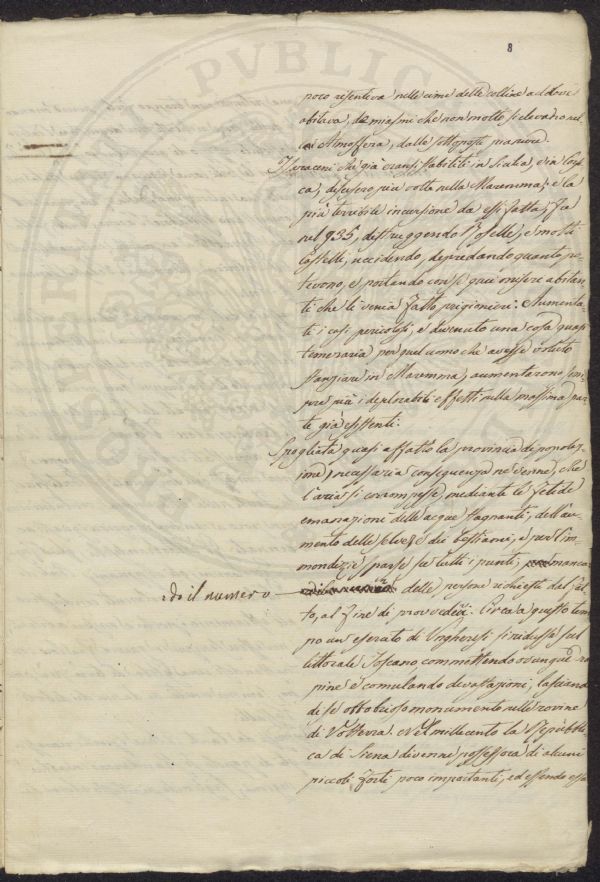 8
poco risentiva nelle cime delle colline addove
abitava, de miasmi che non molto si elevano nel
Atmosfera, dalle sottoposte pianure.
I Saraceni che già eransi stabiliti in Sicilia, e in Corsi
ca, discesero più volte nella Maremma, e la
più terribile incursione da essi fatta, fu
nel 935, distruggendo Roselle, e molti
Castelli, uccidendo, depredando quanto po
tevono, e portando con se quei miseri abitan
ti che li venia fatto prigionieri. Aumenta
ti i casi pericolosi, e divenuto una cosa quasi
temeraria per quel uomo che avesse voluto
stanziare in Maremma, aumentarono sem
pre più i deplorabili effetti nella massima par
te già esistenti.
Spogliata quasi affatto la provincia di popolaz
ione, necessaria conseguenza ne venne, che
l'aria si corrompesse, mediante le fetide
emanazioni delle acque stagnanti, dell'au
mento delle selve e dei bestiami, e per l'im
mondezze sparse su tutti i punti, manca
ndo il numero delle persone richieste dal fat
to, al fine di provvederci. Circa a questo tem
po un esercito di Ungheresi si ridusse sul
littorale Toscano, commettendo ovunque ra
pine e comulando devastazioni, lasciando
di se obbrobrioso monumento nelle rovine
di Volterra. Nel millecento la Repubbli
ca di Siena divenne possessora di alcuni
piccoli forti poco importanti, ed essendo essa